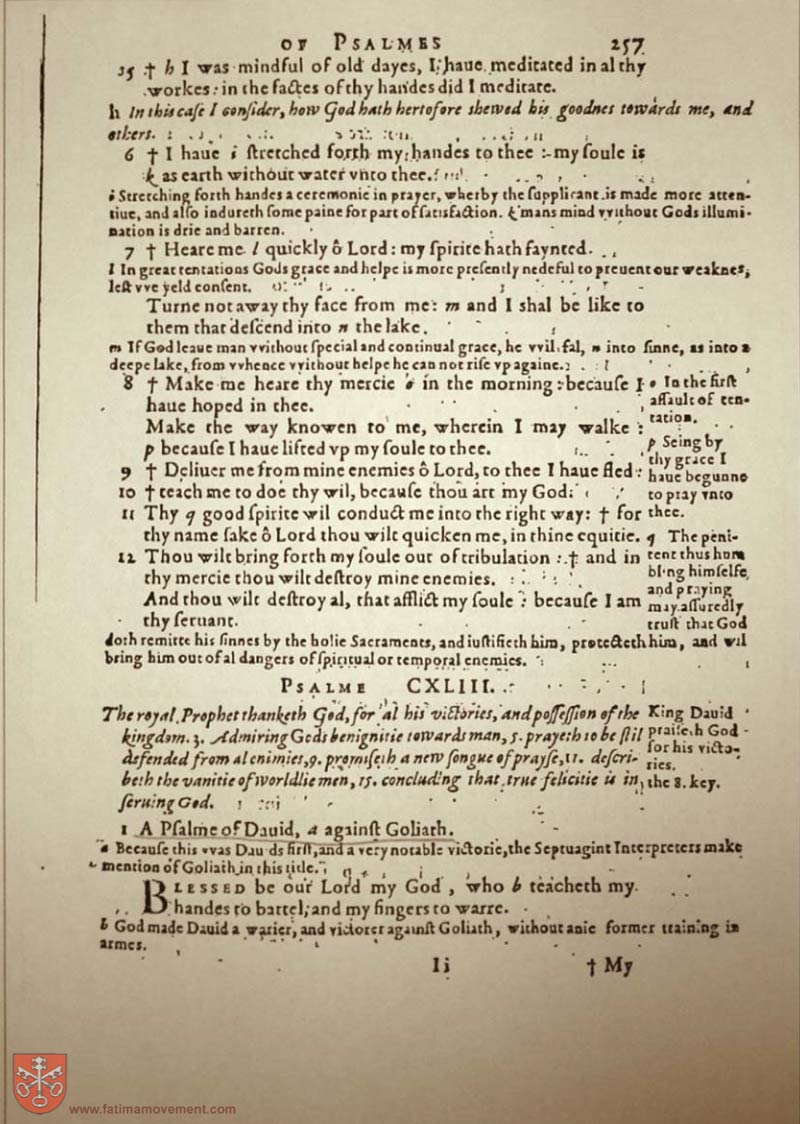 OF PSALMES 257
35 † h I was mindful of old dayes, I haue meditated in al thy
workes: in the factes of thy handes did I meditate.
h In this caſe I conſider, how God hath hertofore shewed his goodnes towards me, and
others.
6 † I haue i ſtretched forth my handes to thee: my ſoule is
k as earth without water vnto thee.
i Stretching forth handes a ceremonie in prayer, wherby the ſupplicant is made more atten-
tiue, and alſo indureth ſome paine for part of ſatisfaction. k mans mind vvithout Gods illumi-
nation is drie and barren.
7 † Heare me l quickly ô Lord: my ſpirite hath faynted.
l In great tentations Gods grace and helpe is more preſently nedeful to preuent our weaknes,
leſt vve yeld conſent.
Turne not away thy face from me: m and I shal be like to
them that deſcend into n the lake.
m If God leaue man vvithout ſpecial and continual grace, he vvil fal, n into ſinne, as into a
deepe lake, from vvhence vvithout helpe he can not riſe vp againe.
8 † Make me heare thy mercie o in the morning: becauſe I
haue hoped in thee.
Make the way knowen to me, wherein I may walke:
p becauſe I haue lifted vp my ſoule to thee.
9 † Deliuer me from mine enemies ô Lord, to thee I haue fled:
10 † teach me to doe thy wil, becauſe thou art my God:
11 Thy q good ſpirite wil conduct me into the right way: † for
thy name ſake ô Lord thou wilt quicken me, in thine equitie.
12 Thou wilt bring forth my ſoule out of tribulation: † and in
thy mercie thou wilt deſtroy mine enemies.
And thou wilt deſtroy al, that afflict my ſoule: becauſe I am
thy ſeruant.
o In the firſt
aſſault of ten-
tation.
p Seing by
thy grace I
haue begunne
to pray vnto
thee.
q The peni-
tent thus hum
bling himſelfe,
and praying
may aſſuredly
truſt that God
doth remitte his ſinnes by the holie Sacraments, and iuſtifieth him, protecteth him, and wil
bring him out of al dangers of ſpiritual or temporal enemies.
PSALME CXLIII.
The royal Prophet thanketh God, for al his victories, and poſſeſſion of the
kingdom. 3. Admiring Gods benignitie towards man, 5. prayeth to be ſtil
defended from al enimies, 9. promiſeth a new ſongue of prayſe, 11. deſcri-
beth the vanitie of worldlie men, 15. concluding that true felicitie is in
ſeruing God.
King Dauid
praiſeth God
for his victo-
ries.
the 8. key.
1 A Pſalme of Dauid, a againſt Goliath.
a Becauſe this vvas Dauids firſt, and a very notable victorie, the Septuagint Interpreters make
mention of Goliath in this title.
BLESSED be our Lord my God, who b teacheth my
handes to battel, and my fingers to warre.
b God made Dauid a warier, and victorer againſt Goliath, without anie former training in
armes.
Ii † My
www.fatimamovement.com